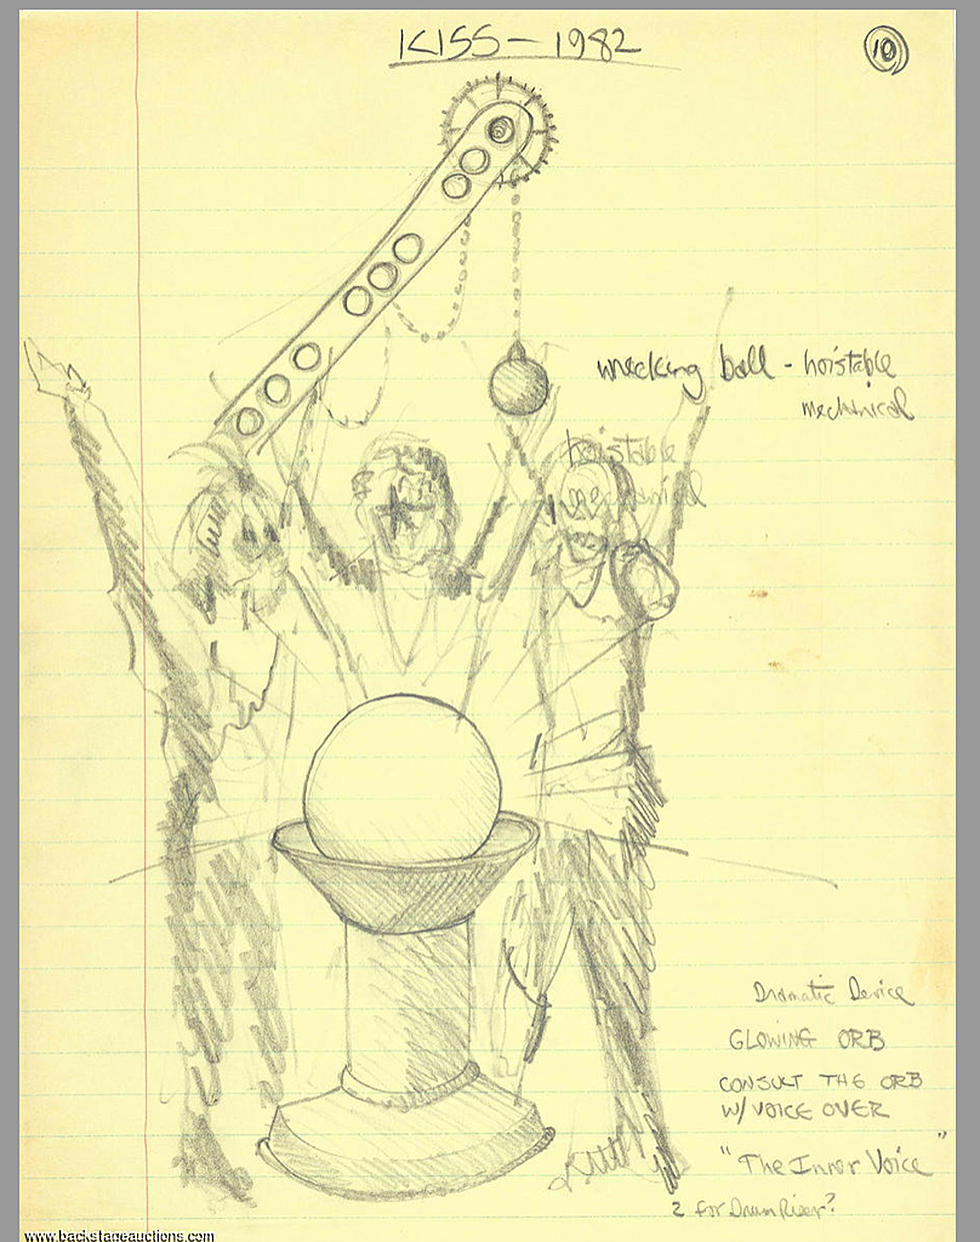 KISS - 1982
10
wrecking ball - hoistable
mechanical
hoistable
mechanical
Dramatic Device
GLOWING ORB
CONSULT THE ORB
W/ VOICE OVER
"The Inner Voice"
2 for Drum Riser?
www.backstageauctions.com